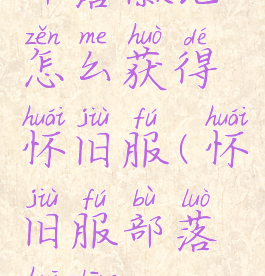 zěn me huò dé
怎么获得
huái jiù fú ( huái
怀旧服(怀
jiù fú bù luò
旧服部落